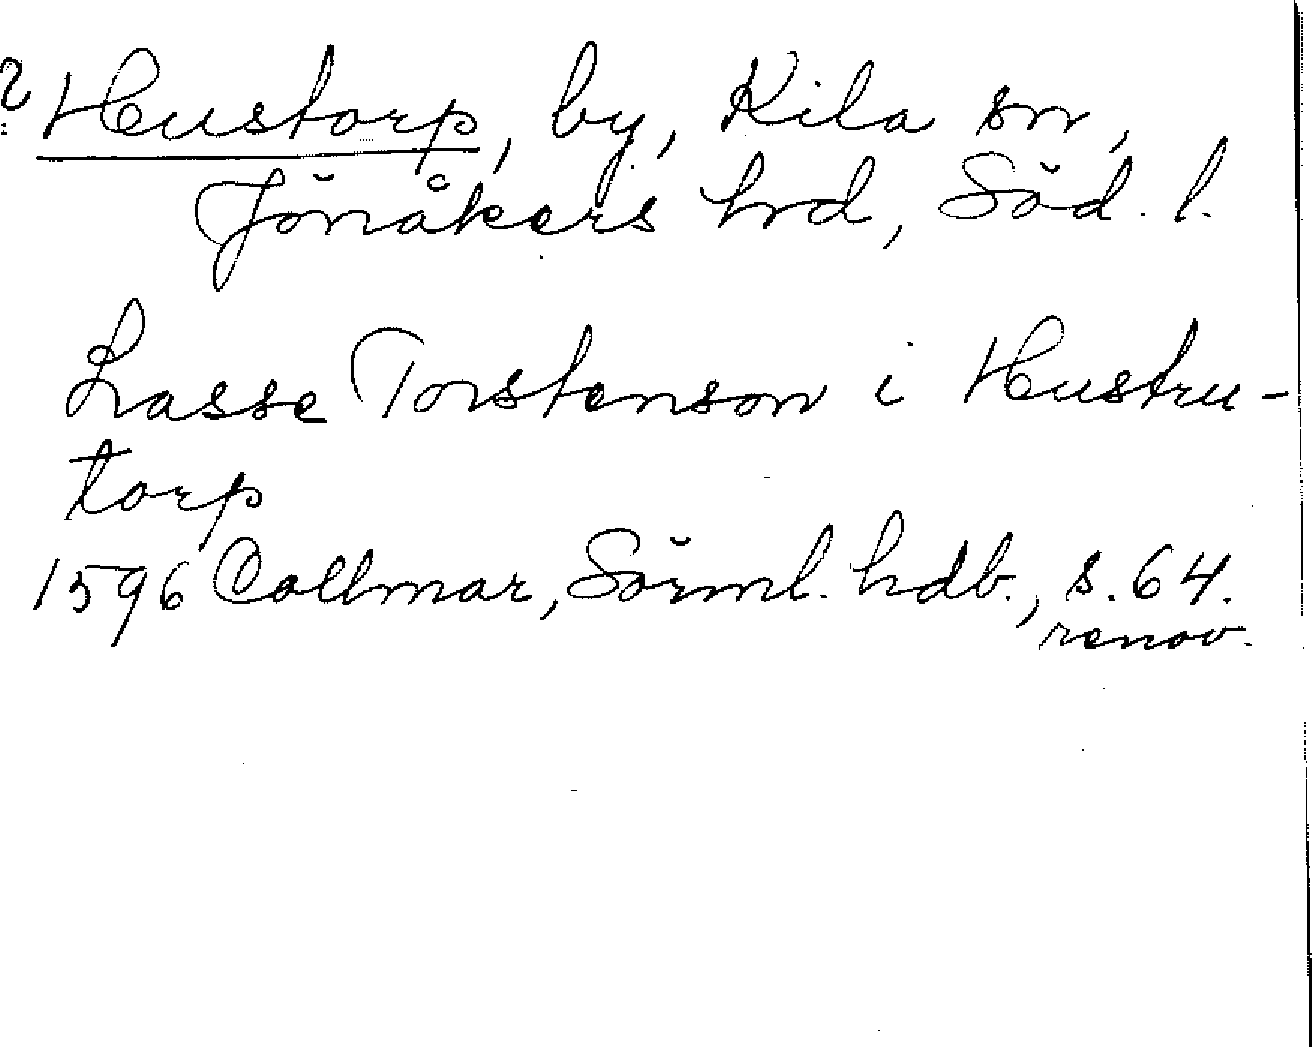 ? Hustorp, by, Kila sn,
Jönåkers hrd, Söd. l.
Lasse Torstenson i Hustru-
torp
1596 Collmar, Sörml. hdb., s. 64.
renov.